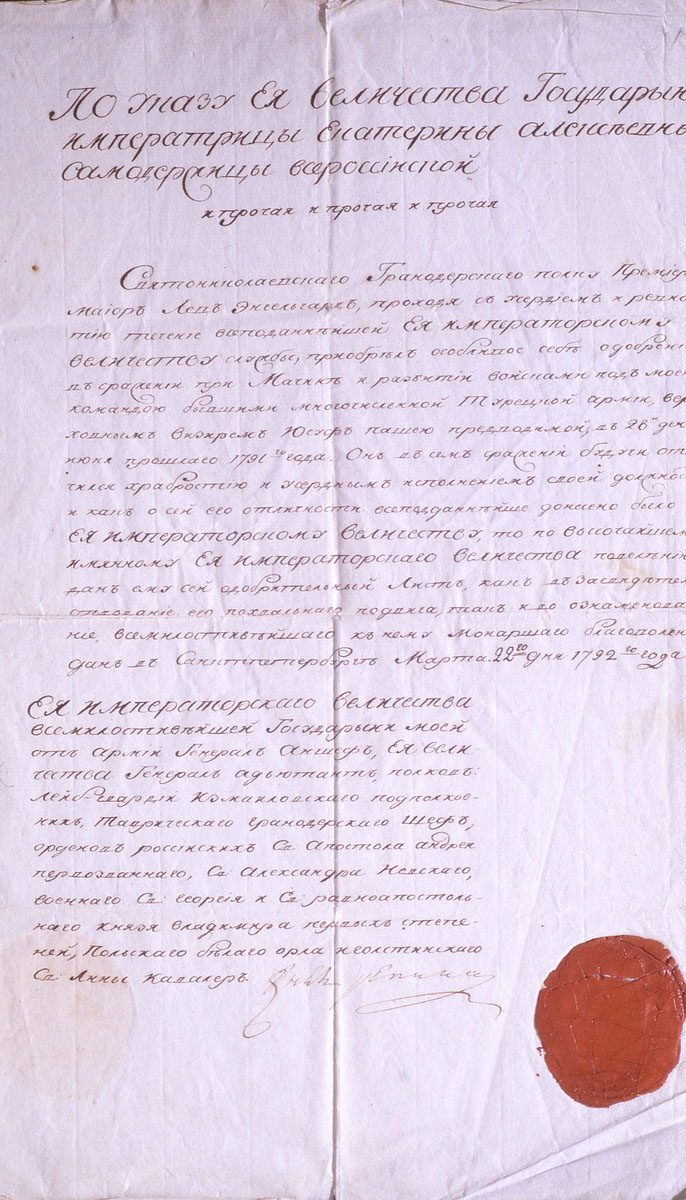 По указу Ея Величества Государын
императрицы Екатерины алексѣевны
самодержицы всероссiиской
и прочая и прочая и прочая
Святониколаевскаго Гранодерскаго полку Премiер
маiоръ Левъ Энгельгардъ, проходя съ усердiемъ и ревно
тiю теченiе всеподаннѣйшей Ея императорскому
величеству службы, приобрѣлъ особливое себѣ одобренi
въ сраженiи при Мачинѣ и разбитiи войсками подъ мое
командою бывшими многочисленной Турецкой армiи, вер
ховнымъ визиремъ Юсуфъ пашею предводимой, въ 28й ден
июня прошлаго 1791го года. Онъ въ семъ сраженiи будучи отл
чился храбростiю и усерднымъ исполненiемъ своей должнос
и какъ о сей его отличности всеподданнѣйше донесено было
Ея императорскому величеству, то по высочайшем
имянному Ея императорскаго величества повелѣнi
данъ ему сей одобрительный Листъ, какъ въ засвидѣтел
ствованiе его похвальнаго подвига, такъ и во ознаменова
нiе, всемилостивѣйшаго къ нему Монаршаго благоволенi
данъ въ Санктпетербургѣ Марта 22го дня 1792го года
Ея императорскаго величества
всемилостивѣйшей Государыни моей
отъ армiи Генералъ Аншефъ, Ея вели-
чества Генералъ адъютантъ, полковъ:
Лейбъгвардiи Измаиловскаго подполков-
никъ, Таврическаго гранодерскаго Шефъ,
орденовъ россiискихъ Св: Апостола андрея
первозваннаго, Св: Александра Невскаго,
военнаго Св: георгiя и Св: равноапостоль-
наго князя владимира первыхъ степе-
ней, Польскаго бѣлаго орла и голстинскаго
Св: Анны Кавалеръ. Князь Репнин